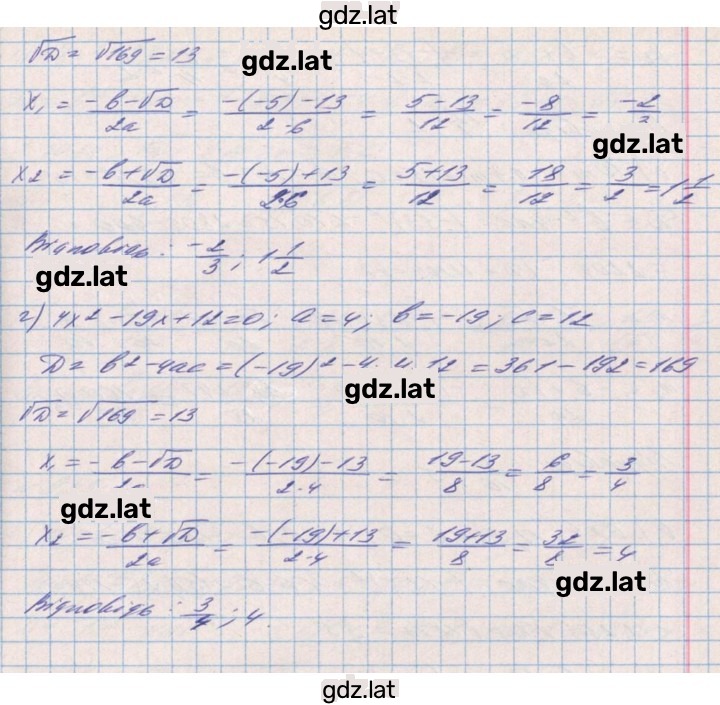 gdz.lat
√D = √169 = 13
gdz.lat
x₁ = (-b-√D)/2a = (-(-5)-13)/(2·6) = (5-13)/12 = -8/12 = -2/3
gdz.lat
x₂ = (-b+√D)/2a = (-(-5)+13)/(2·6) = (5+13)/12 = 18/12 = 3/2 = 1 1/2
Відповідь: -2/3; 1 1/2
gdz.lat
г) 4x² - 19x + 12 = 0; a = 4; b = -19; c = 12
D = b² - 4ac = (-19)² - 4·4·12 = 361 - 192 = 169
gdz.lat
√D = √169 = 13
x₁ = (-b-√D)/2a = (-(-19)-13)/(2·4) = (19-13)/8 = 6/8 = 3/4
gdz.lat
x₂ = (-b+√D)/2a = (-(-19)+13)/(2·4) = (19+13)/8 = 32/8 = 4
gdz.lat
Відповідь: 3/4; 4.
gdz.lat